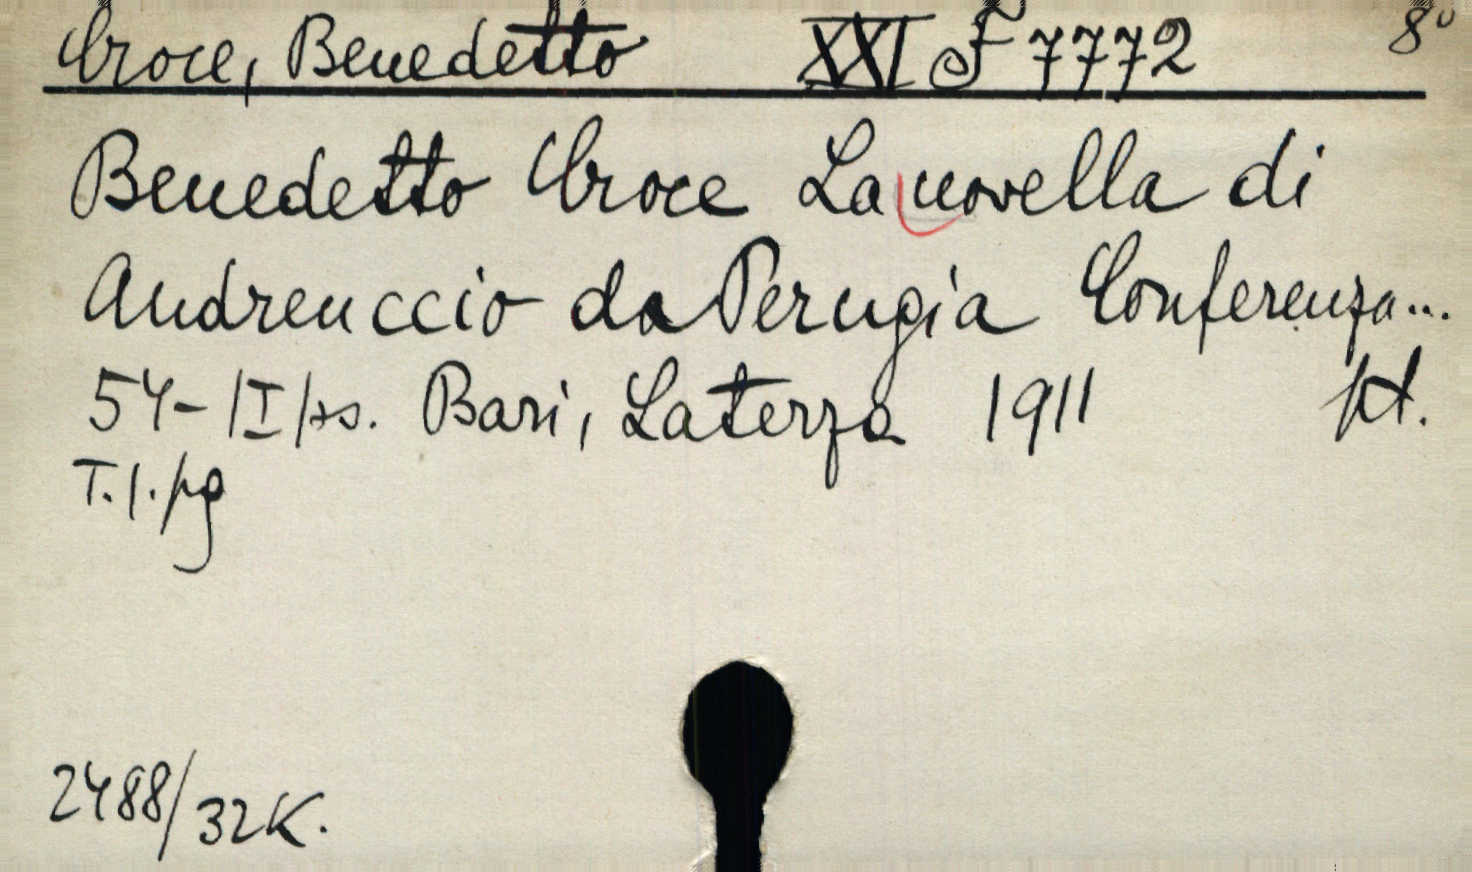 Croce, Benedetto XXI F 7772 8°
Benedetto Croce La novella di
Andreuccio da Perugia Conferenza...
54-|I|ss. Bari, Laterza 1911
T.1.pg
2488/32K.